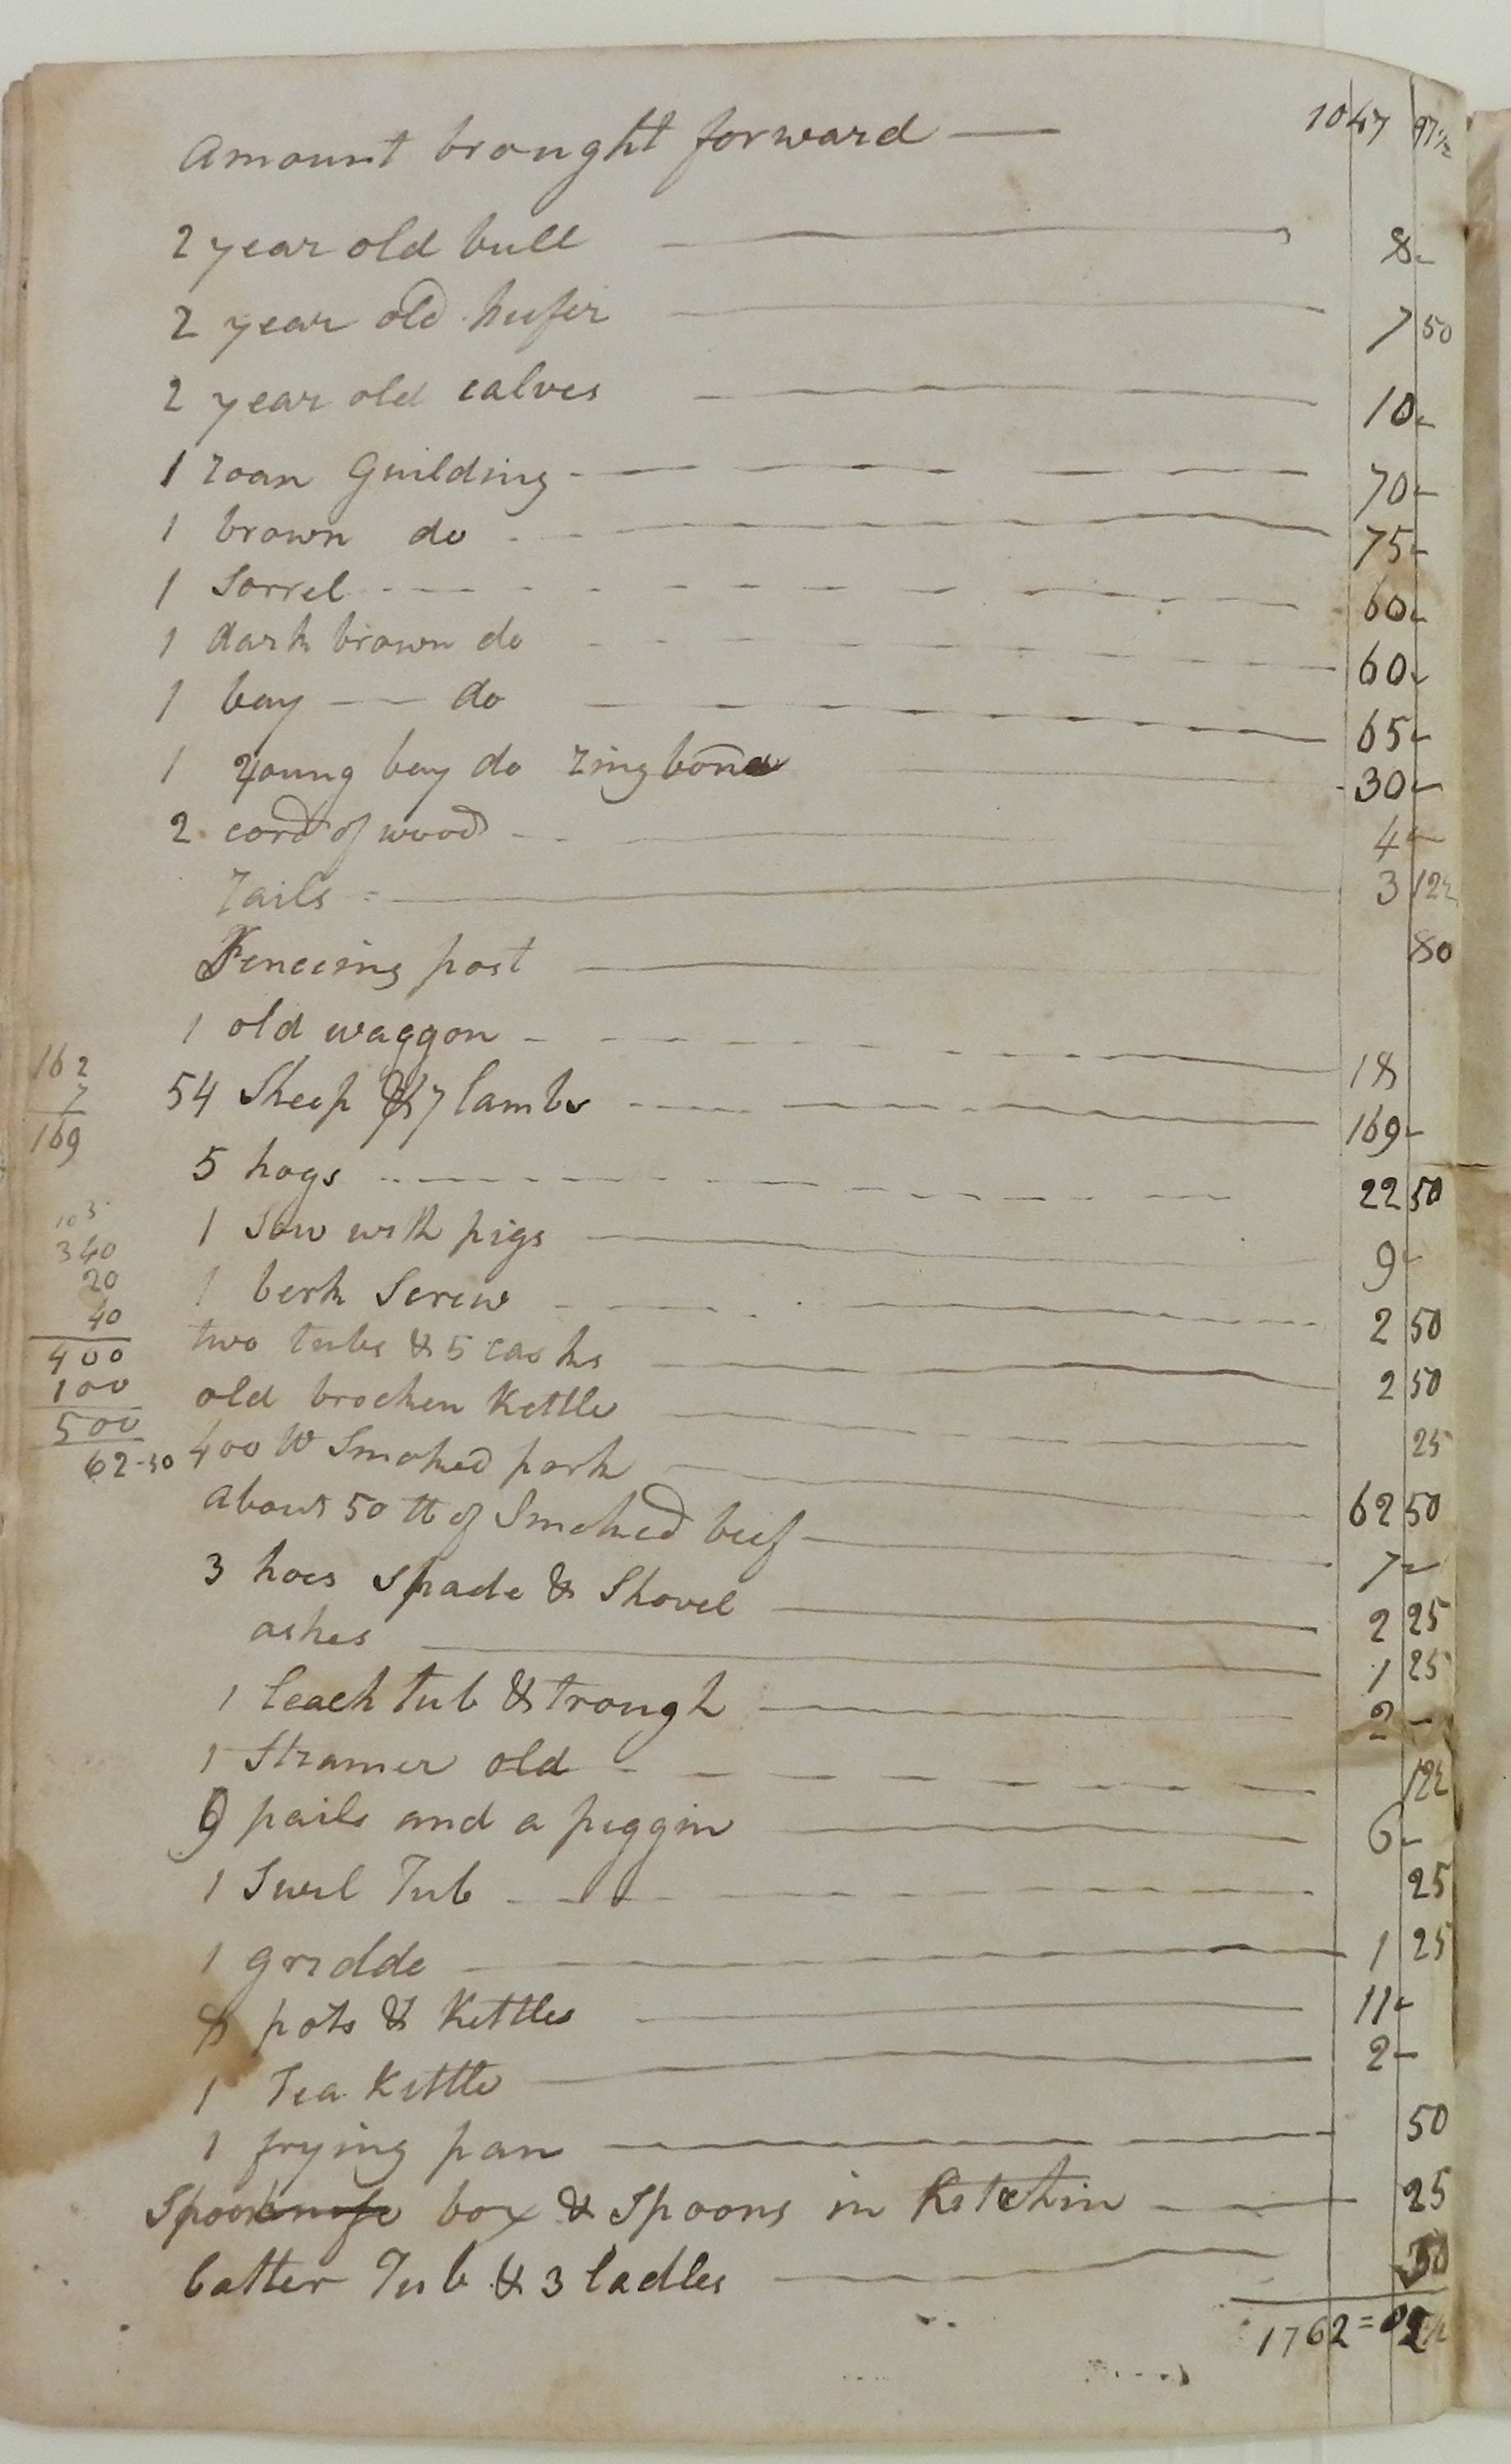 Amount brought forward — 1047 97 1/2
2 year old bull — 8 -
2 year old hufer — 7 50
2 year old calves — 10 -
1 roan Guilding - — 70 -
1 brown do — 75 -
1 Sorrel — 60 -
1 dark brown do — 60 -
1 bay — do — 65 -
1 young bay do ringbone — 30 -
2 cord of wood — 4 -
rails — 3 12 1/2
Fenceing post — 80
1 old waggon — 18
162
7
169
54 Sheep & 7 lambs — 169 -
5 hogs — 22 50
1 Sow with pigs — 9 -
340
20
40
400
100
500
62-50
1 Screw — 2 50
two tubs & 5 casks — 2 50
old brocken Kettle — 25
400 W Smoked pork — 62 50
about 50 tt of Smoked beef — 7 -
3 hoes Spade & Shovel — 2 25
ashes — 1 25
1 leach tub & trough — 2 -
1 Strainer old — 12 1/2
9 pails and a piggin — 6 -
1 Swil Tub — 25
1 griddle — 1 25
8 pots & Kettles — 11 -
1 Tea Kettle — 2 -
1 frying pan — 50
Spoon box & Spoons in Kitchin — 25
batter Tub & 3 ladles — 50
1762 =